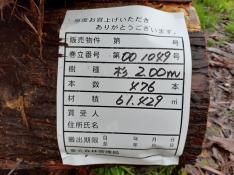 毎度お買上げいただき
ありがとうございます。
販売物件 第 号
巻立番号 第001049号
樹種 杉 2.00m
本数 476本
材積 61.429㎥
買受人
住所氏名
搬出期限 自 年 月 日